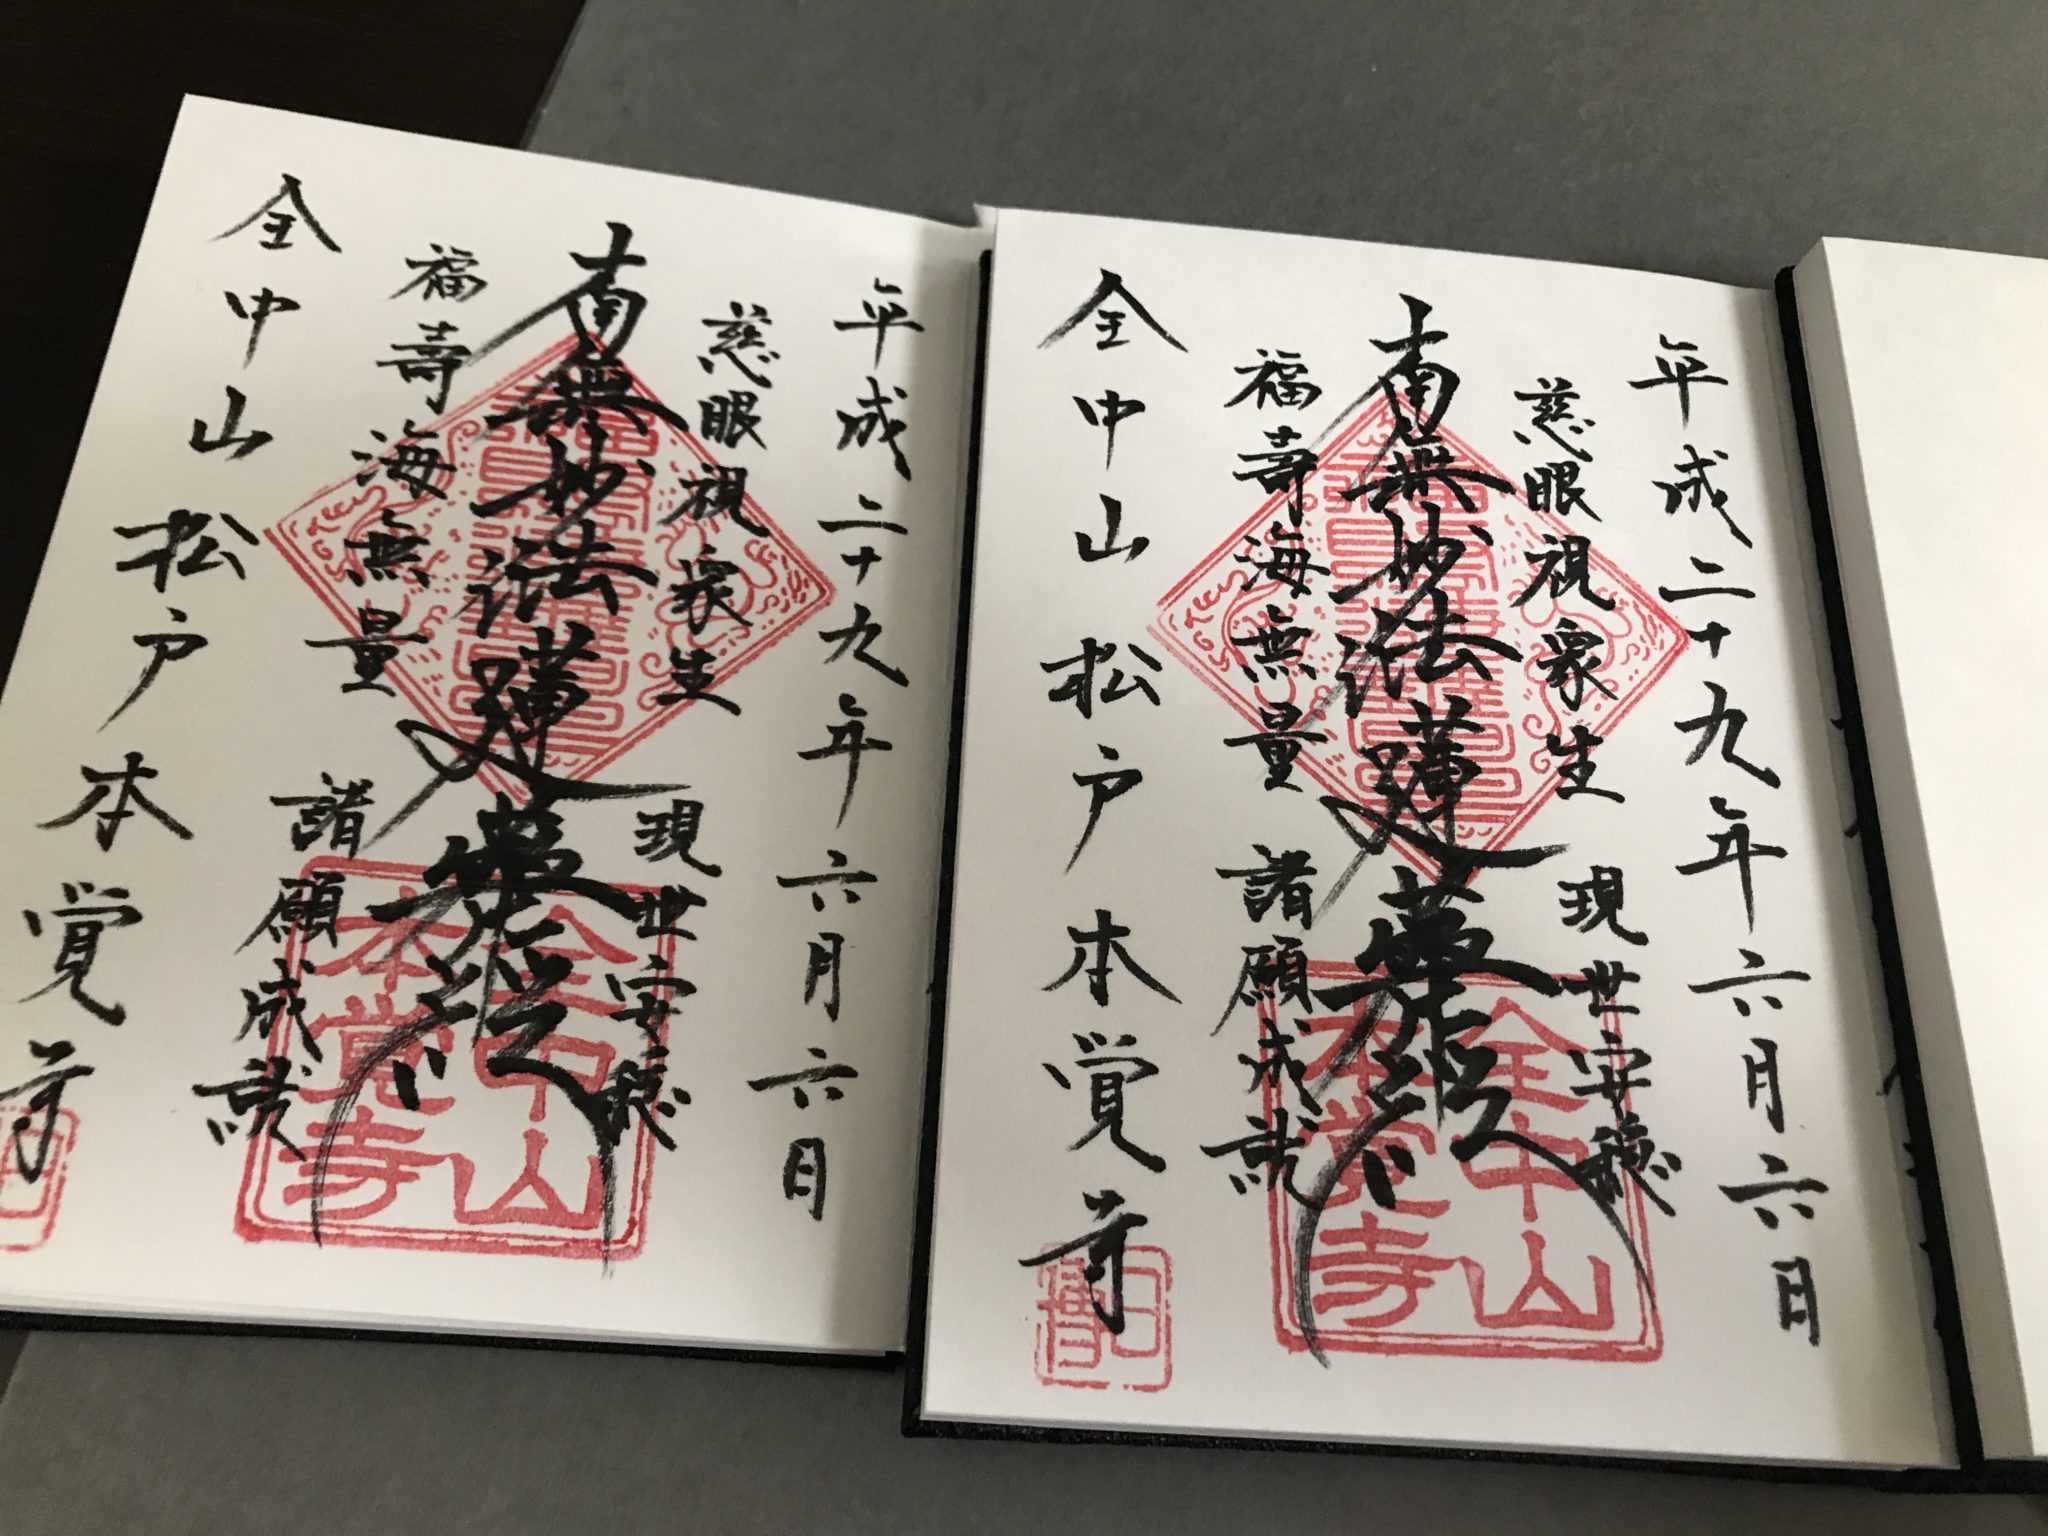 平成二十九年六月六日
慈眼視衆生 現世安穏
南無妙法蓮華経
福壽海無量 諸願成就
全中山 松戸 本覚寺
全中山
本覚寺
平成二十九年六月六日
慈眼視衆生 現世安穏
南無妙法蓮華経
福壽海無量 諸願成就
全中山 松戸 本覚寺
全中山
本覚寺